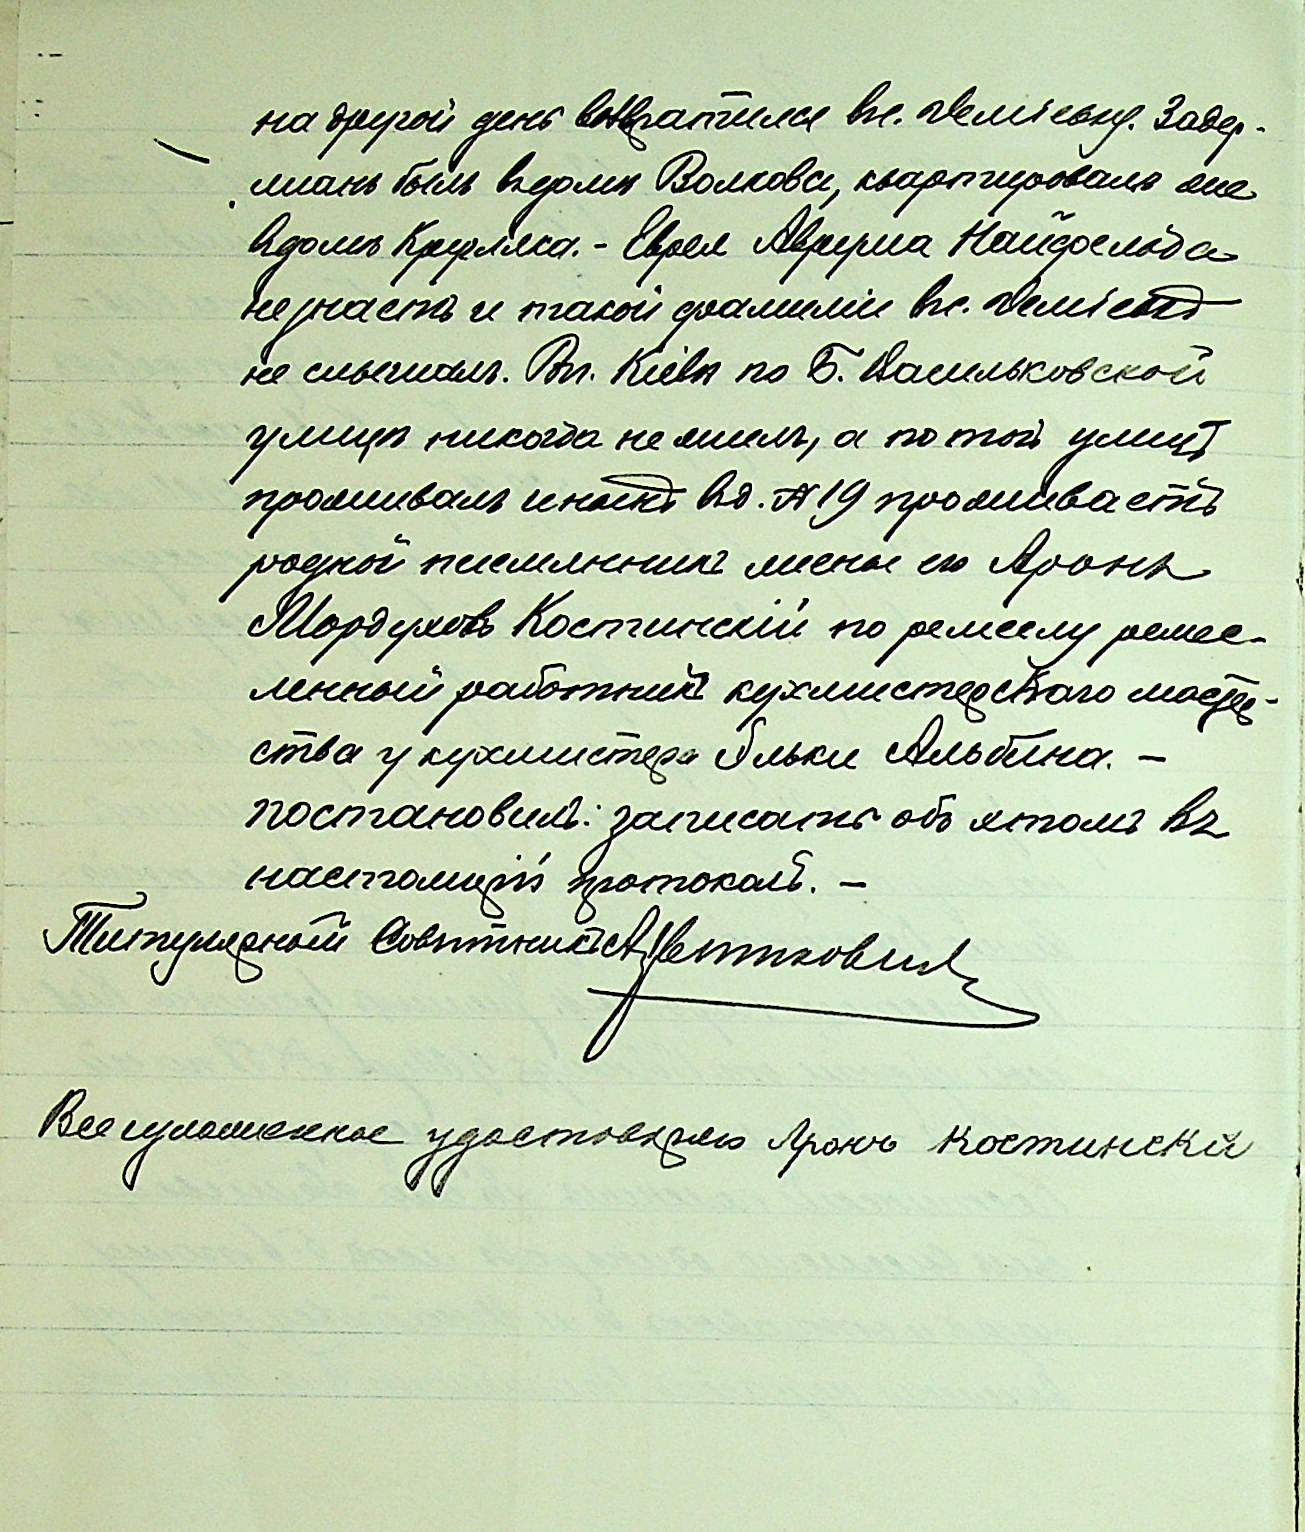 на другой день возвратился въ с. Деміевку. Задер-
жанъ былъ въ домѣ Волкова, квартировалъ же
въ домѣ Кругляка. - Еврея Аврума Найфельда
не знаетъ и такой фамиліи въ с. Деміевкѣ
не слышалъ. Въ г. Кіевѣ по Б. Васильковской
улицѣ никогда не жилъ, а по той улицѣ
проживалъ и нынѣ въ д. № 19 проживаетъ
родной племянникъ жены его Аронъ
Мордуховъ Костинскій по ремеслу ремес-
ленный работникъ кухмистерскаго мастер-
ства у кухмистера Альбина. -
постановилъ: записать объ этомъ въ
настоящій протоколъ. -
Титулярный Совѣтникъ А Цвѣтковичъ
Все изложенное удостовѣряю Аронъ Костинскій